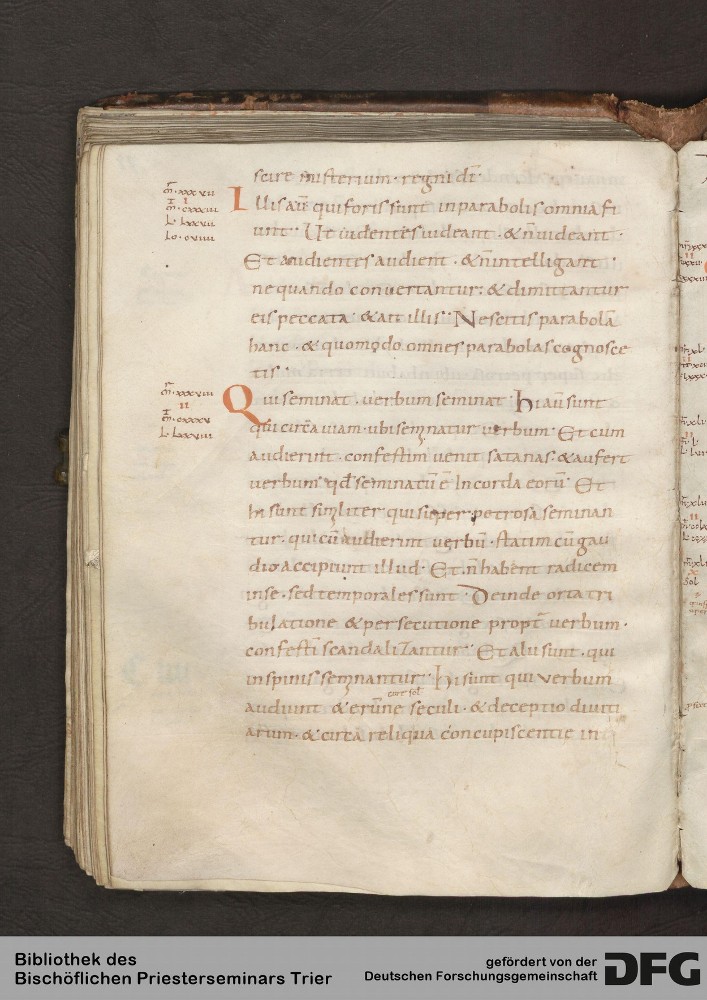 scire misterium · regni dī
Illis aū qui foris sunt in parabolis omnia fi
unt · Ut uidentes uideant · & n̄ uideant ·
Et audientes audient · & n̄ intelligant ·
ne quando conuertantur : & dimittantur
eis peccata · & ait illis · Nescitis parabolā
hanc · & quomodo omnes parabolas cognosce
tis ·
Qui seminat · verbum seminat · hi aū sunt
qui circa uiam · ubi seminatur verbum · Et cum
audierint · confestim uenit satanas · & aufert
verbum · qd̄ seminatū ē In corda eorū · Et
hi sunt similiter qui super petrosa seminan
tur · qui cū audierint verbū · statim cū gau
dio accipiunt illud · Et n̄ habent radicem
in se · sed temporales sunt · Deinde orta tri
bulatione & persecutione propt̄ uerbum ·
confestī scandalizantur · Et alii sunt · qui
in spinis seminantur · hi sunt qui verbum
audiunt & erūne seculi · & deceptio diuiti
arum · & circa reliqua concupiscentie in
m̄ · xxxvii
ī · cxxxiii
l · lxxvii
m̄ · xxxviii
II
ī · cxxxv
l · lxxviii
Bibliothek des
Bischöflichen Priesterseminars Trier
gefördert von der
Deutschen Forschungsgemeinschaft
DFG